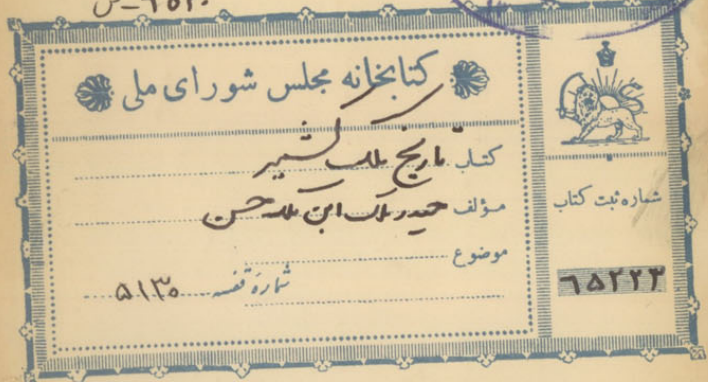 کتابخانه مجلس شورای ملی
کتاب تاریخ ملک کشمیر
مؤلف حیدر ملک ابن ملک حسن
موضوع
شمارهٔ قفسه ۵۱۳۰
شماره ثبت کتاب
۶۵۲۲۳